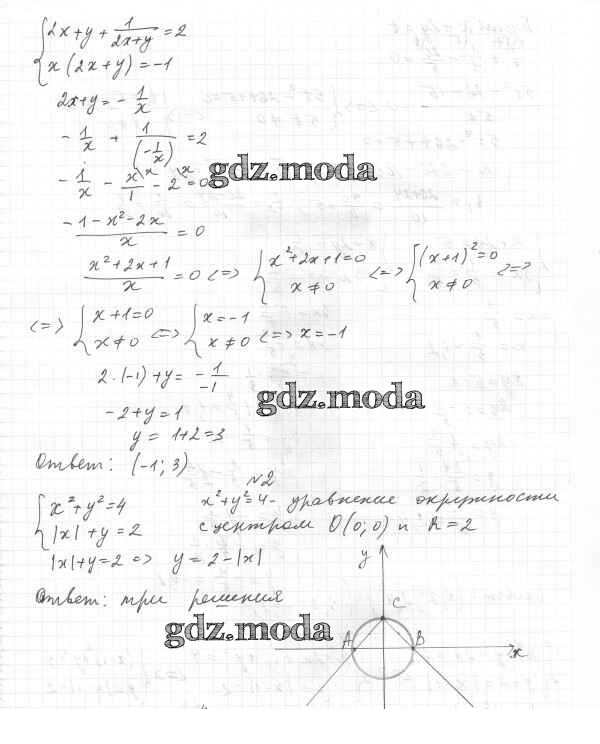 2x+y+1/(2x+y)=2
x(2x+y)=-1
2x+y=-1/x
-1/x+1/(-1/x)=2
-1/x-x/1-2=0
gdz.moda
(-1-x²-2x)/x=0
(x²+2x+1)/x=0 <=> {x²+2x+1=0 x≠0 <=> {(x+1)²=0 x≠0 <=>
<=> {x+1=0 x≠0 <=> {x=-1 x≠0 <=> x=-1
2·(-1)+y=-1/-1
gdz.moda
-2+y=1
y=1+2=3
Ответ: (-1;3)
№2
x²+y²=4 x²+y²=4- уравнение окружности
|x|+y=2 с центром O(0;0) и R=2
|x|+y=2 => y=2-|x|
y
Ответ: три решения
C
gdz.moda
A B x